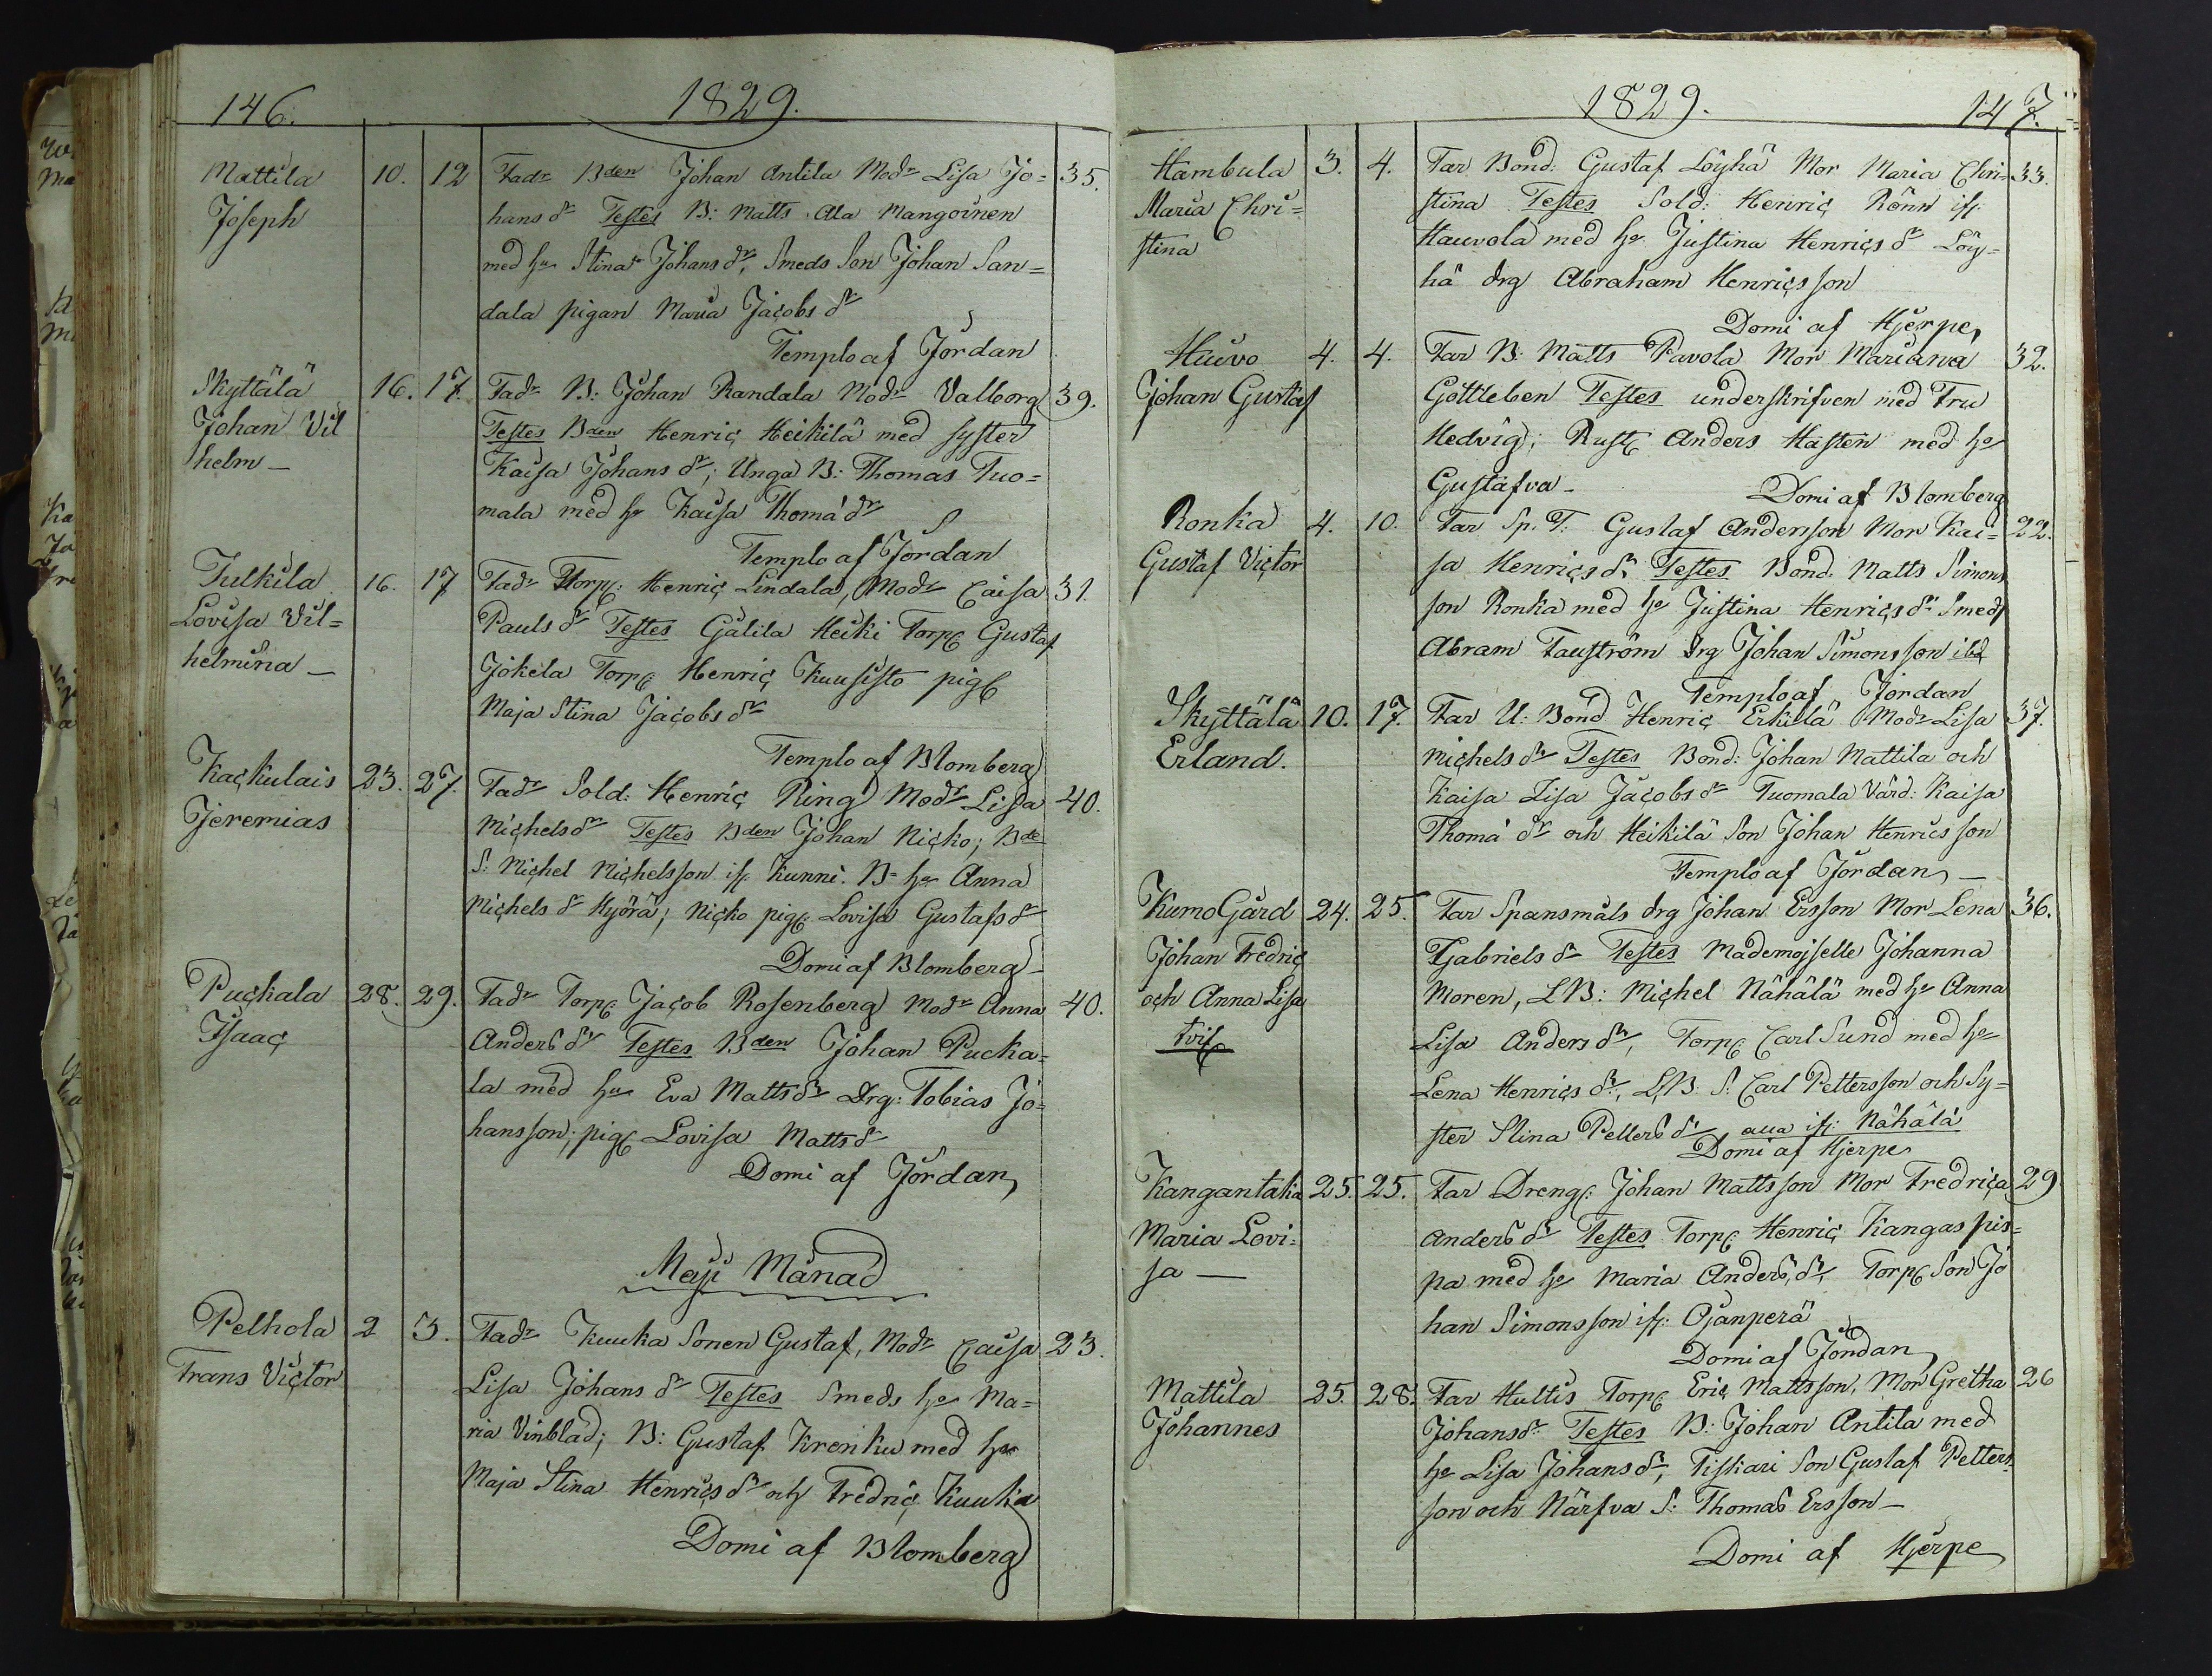 146.
1829.
Mattila 10. 12 Fadr Bden Johan Antila Modr Lisa Jo= 35.
Joseph hans dr Testes B: Matts Ala Mangoinen
med hu Stina Johans dr, Smeds Son Johan San=
dala pigan Maria Jacobs dr
Templo af Jordan
Skyttälä 16. 17. Fadr B: Johan Randala Modr Valborg 39.
Johan Vil Testes Bden Henric Heikilä med syster
helm – Kaisa Johans dr; Unga B: Thomas Tuo=
mala med hu Kaisa Thomä dr
Templo af Jordan
Tulkila 16. 17 Fadr Torp: Henric Lindala, Modr Caisa 31.
Lovisa Vil= Pauls dr Testes Gälila Heiki Torp Gustaf
helmina – Jokela Torp Henric Kuusisto pig
Maja Stina Jacobs dr
Templo af Blomberg
Kackulais 23. 27. Fadr Sold: Henric Ring Modr Lisa 40.
Jeremias Michels dr Testes Bden Johan Nicko; Bde
S: Michel Michelsson if: Kunni. B= hu Anna
Michels dr Kyörä; Nicko pig Lovisa Gustafs dr
Domi af Blomberg
Puckala 28. 29. Fadr Torp Jacob Rosenberg Modr Anna 40.
Isaac Anders dr Testes Bden Johan Pucka=
la med hu Eva Matts dr Drg: Tobias Jo=
hansson; pig Lovisa Matts dr
Domi af Jordan
Maji Månad
Pelhola 2 3. Fadr Kuuka Sonen Gustaf, Modr Caisa 23.
Frans Victor Lisa Johans dr Testes Smeds hu Ma=
ria Vinblad; B: Gustaf Krenku med hu
Maja Stina Henrics dr och Fredric Kuuka
Domi af Blomberg
1829.
147.
Hambula 3. 4. Far Bond: Gustaf Löyhä Mor Maria Chri= 33.
Maria Chri= stina Testes Sold: Henric Rönn if:
stina Hauvola med hu Justina Henrics dr Löy=
hä drg Abraham Henricsson
Domi af Hjerpe
Huivo 4. 4. Far B: Matts Pavola Mor Mariana 32.
Johan Gustaf Gottleben Testes underskrifven med Fru
Hedvig; Rust Anders Hasten med hu
Gustafva – Domi af Blomberg
Ronka 4. 10. Far Sp. T: Gustaf Andersson Mor Kai= 22.
Gustaf Victor sa Henrics dr Testes Bond Matts Simons
son Ronka med hu Justina Henrics dr Smed
Abram Fauström drg Johan Simonsson ibd
Templo af Jordan
Skyttälä 10. 17. Far U: Bond Henric Erkilä Modr Lisa 37.
Erland. Michels dr Testes Bond: Johan Mattila och
Kaisa Lisa Jacobs dr Tuomala Värd: Kaisa
Thomä dr och Heikilä Son Johan Henrics son
Templo af Jordan –
Kumo Gård 24. 25. Far Spansmåls drg Johan Ersson Mor Lena 36.
Johan Fredric Gabriels dr Testes Mademojselle Johanna
och Anna Lisa Moren, LB: Michel Nähälä med hu Anna
tvil Lisa Anders dr, Torp Carl Sund med hu
Lena Henrics dr, LB. S: Carl Pettersson och Sy=
ster Stina Petters dr alla if: Nähälä
Domi af Hjerpe
Kangantaka 25. 25. Far Dreng: Johan Mattsson Mor Fredrica 29
Maria Lovi= Anders dr Testes Torp Henric Kangas pis=
sa – pa med hu Maria Anders dr, Torp Son Jo
han Simonsson if: Ojanperä
Domi af Jordan
Mattila 25. 28. Far Hultis Torp Eric Mattsson, Mor Gretha 26
Johannes Johans dr Testes B: Johan Antila med
hu Lisa Johans dr, Tiskari Son Gustaf Petters
son och Närfva S: Thomas Ersson –
Domi af Hjerpe